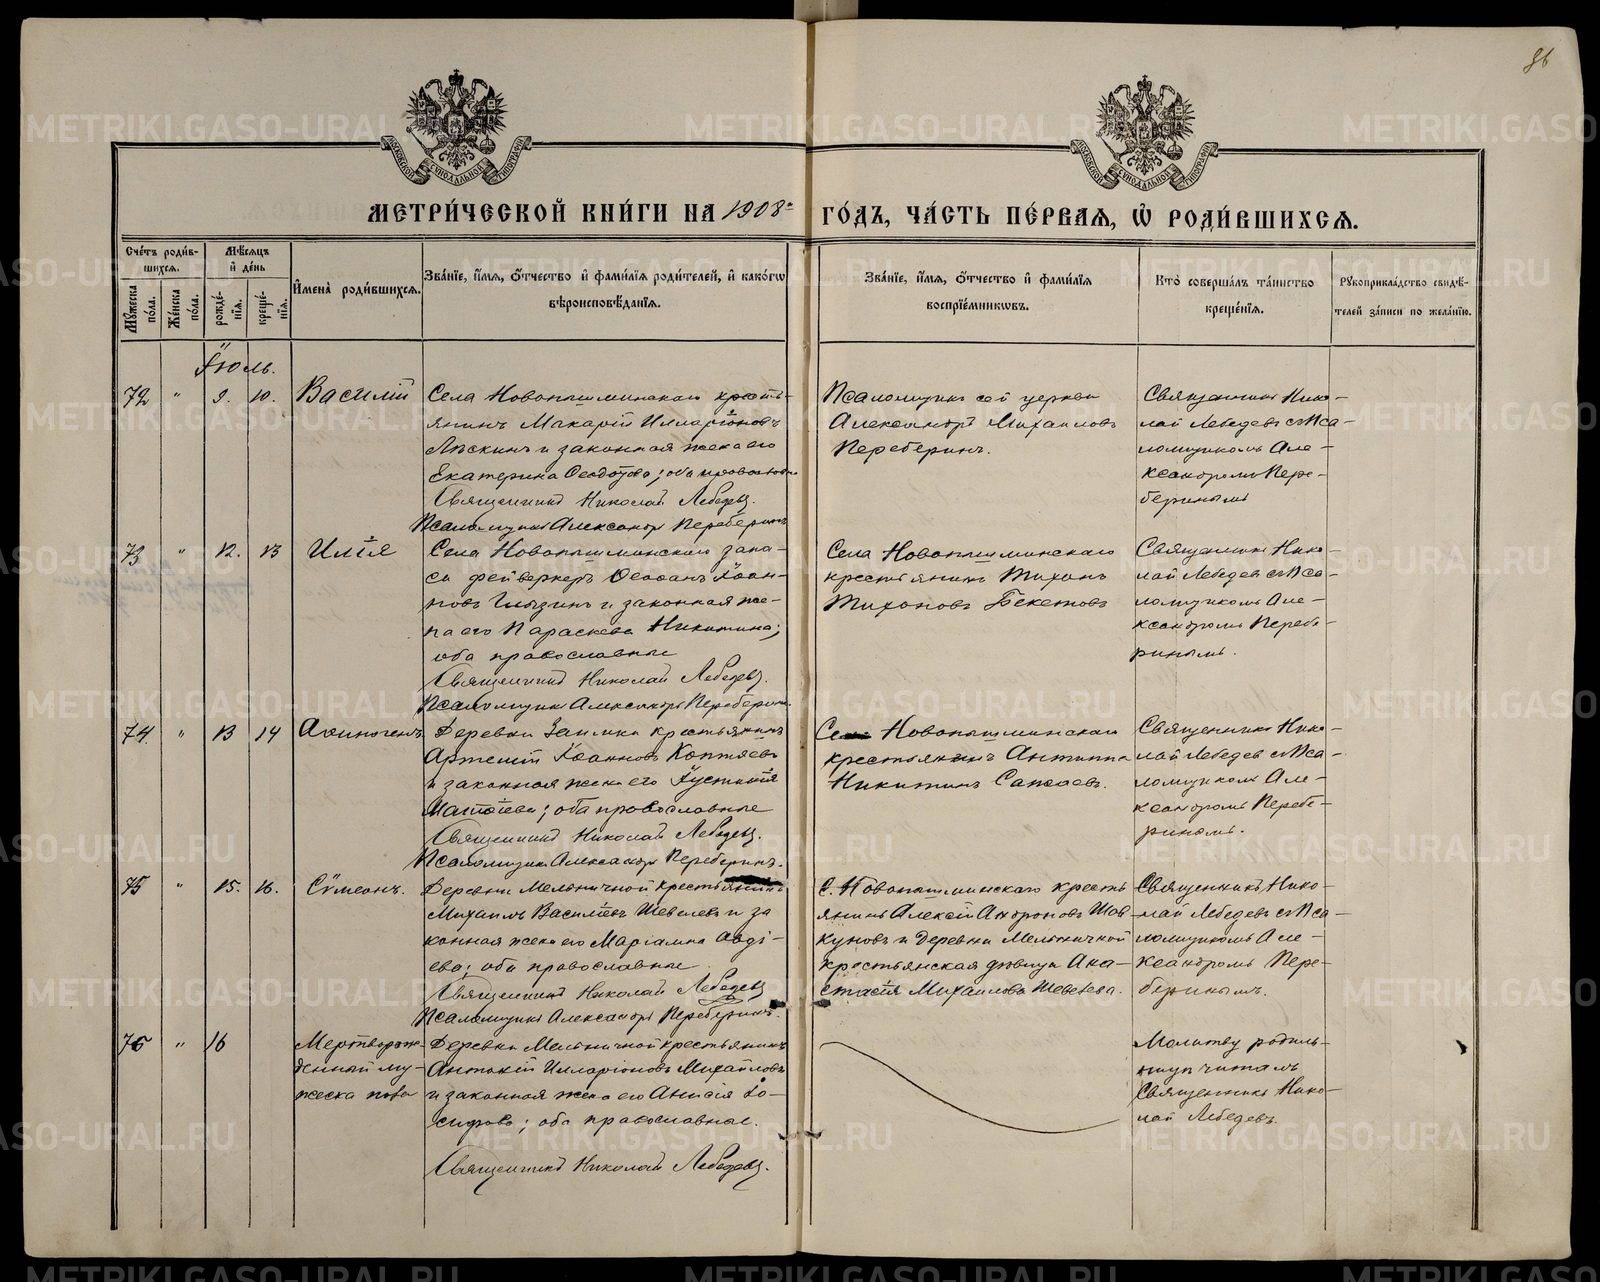 86
МЕТРИ́ЧЕСКОЙ КНИ́ГИ НА 1908й ГО́ДЪ, ЧА́СТЬ ПЕ́РВАЯ, Ѡ҆ РОДИ́ВШИХСЯ.
Сче́тъ роди́в-
шихся.
Му́жеска по́ла.
Же́нска по́ла.
Мѣ́сяцъ и҆ де́нь
рожде́-
нїя.
креще́-
нїя.
И҆мена̀ роди́вшихся.
Зва́нїе, и҆́мя, ѻ҆́тчество и҆ фами́лїя роди́телей, и҆ како́гѡ
вѣроисповѣ́данїя.
Зва́нїе, и҆́мя, ѻ҆́тчество и҆ фами́лїя
воспрїе́мникѡвъ.
Кто̀ соверша́лъ та́инство
креще́нїя.
Рꙋкоприкла́дство свидѣ́-
телей за́писи по жела́нїю.
Іюль.
72 " 9. 10. Василій
Села Новопышминскаго кресть-
янинъ Макарій Илларіоновъ
и законная жена его
Екатерина Ѳеодотова; оба православн
Священникъ Николай Лебедевъ.
Псаломщикъ Александръ Переберинъ
Псаломщикъ сей церкви
Александръ Михаиловъ
Переберинъ.
Священникъ Нико-
лай Лебедевъ съ Пса-
ломщикомъ Але-
ксандромъ Пере-
беринымъ
73 " 12. 13 Илія
Села Новопышминскаго запа-
са фейверкеръ Іоан-
новъ и законная же-
на его Параскева Никитина;
оба православные
Священникъ Николай Лебедевъ.
Псаломщикъ Александръ Переберинъ.
Села Новопышминскаго
крестьянинъ Тихонъ
Тихоновъ Бекетовъ
Священникъ Нико-
лай Лебедевъ съ Пса-
ломщикомъ Але-
ксандромъ Перебе-
ринымъ.
74. " 13 14 Аѳиногенъ
Деревни Заимки крестьянинъ
Артемій Іоанновъ Коптяевъ
и законная жена его Іустинія
Матѳіева; оба православные
Священникъ Николай Лебедевъ.
Псаломщикъ Александръ Переберинъ.
Села Новопышминскаго
крестьянинъ Антипа
Никитинъ
Священникъ Нико-
лай Лебедевъ съ Пса-
ломщикомъ Але-
ксандромъ Перебе-
ринымъ.
75 " 15. 16. Сѵмеонъ.
Деревни Мельничной крестьянинъ
Михаилъ Василіевъ Шевелевъ и за
конная жена его Маріамна Авді-
ева; оба православные
Священникъ Николай Лебедевъ
Псаломщикъ Александръ Переберинъ.
С. Новопышминскаго кресть
янинъ Алексій
и деревни Мельничной
крестьянская дѣвица Ана-
стасія Михаилова Шевелева.
Священникъ Нико-
лай Лебедевъ съ Пса-
ломщикомъ Але-
ксандромъ Пере-
беринымъ.
76 " 16 Мертворож-
денный му-
жеска пола
Деревни Мельничной крестьянинъ
Антоній Илларіоновъ Михайловъ
и законная жена его Анисія Іо-
сифова; оба православные.
Священникъ Николай Лебедевъ.
Молитву родиль-
ницѣ читалъ
Священникъ Нико-
лай Лебедевъ.